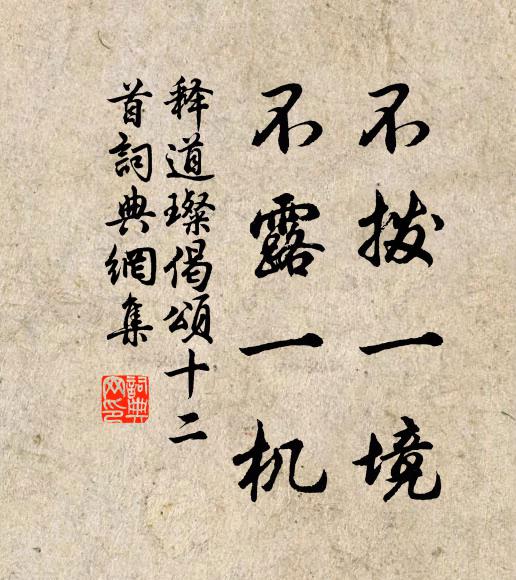 不拨一境
不露一机
释道璨偈颂十二
首詞典網集
詞典
网印